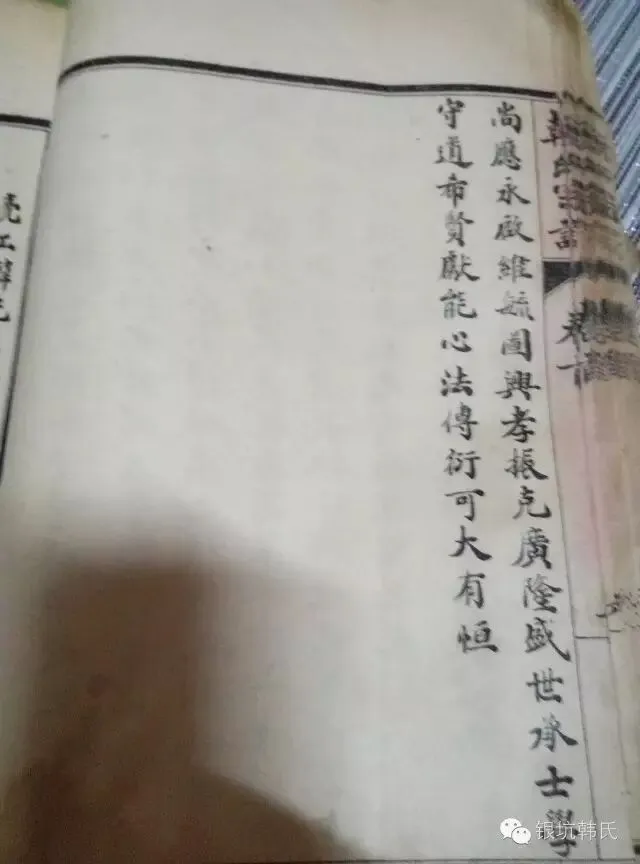 尚應永啟維毓國興孝振克廣隆盛世承士學
守道希賢獻能心法傳衍可大有恒
銀坑韩氏